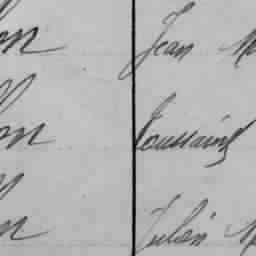 on Jean M
on Toussaint
on Julien M